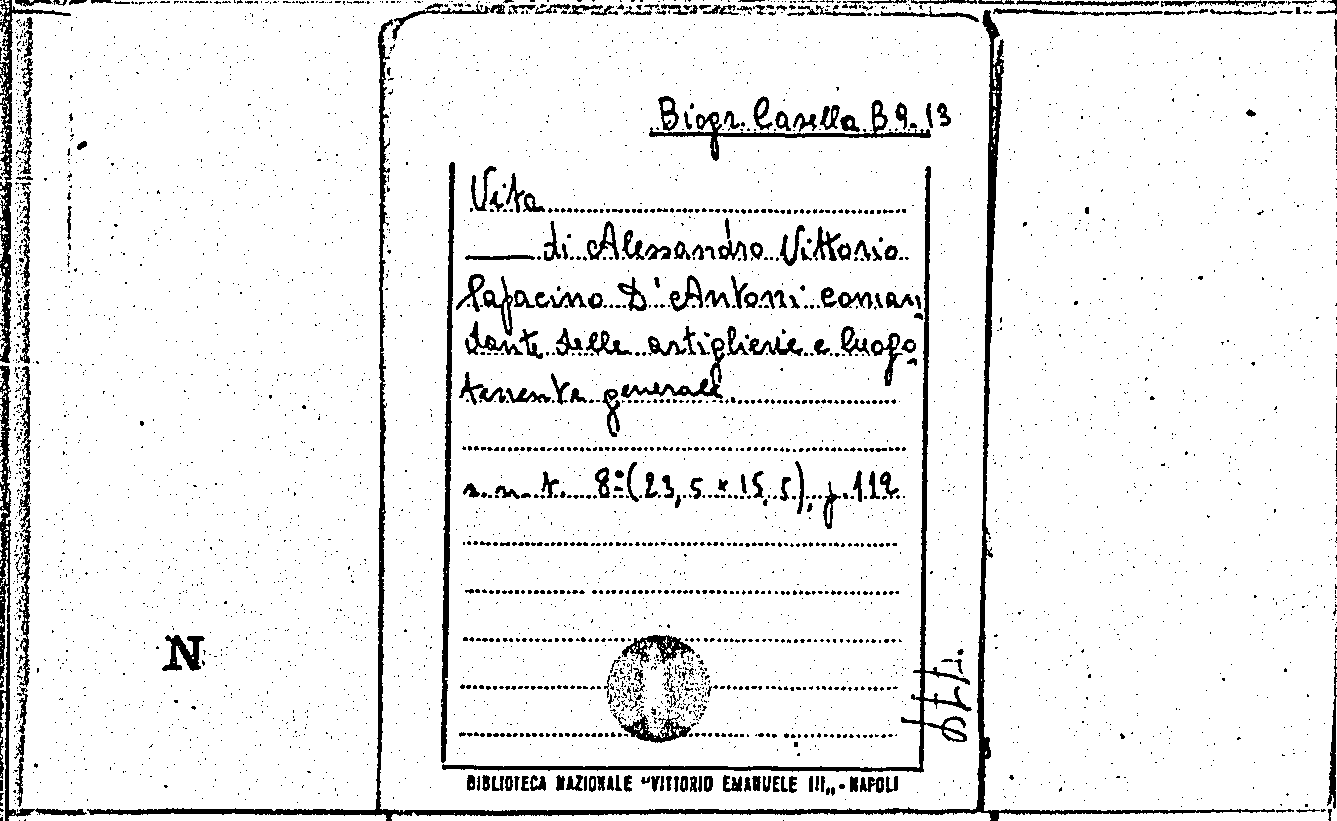 Biogr. Casella B 9. 13
Vita
di Alessandro Vittorio
Papacino D'Antoni coman,
dante delle artiglierie e luogo
tenente generale.
s. n. t. 8º (23,5 × 15,5), p. 112
N
BIBLIOTECA NAZIONALE "VITTORIO EMANUELE III„ - NAPOLI